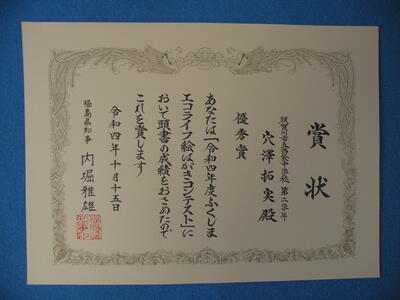 賞状
須賀川市立
中学校 第二学年
穴澤 拓実 殿
優秀賞
あなたは「令和四年度ふくしま
エコライフ絵はがきコンテスト」に
おいて頭書の成績をおさめたので
これを賞します
令和四年十月十五日
福島県知事 内堀雅雄